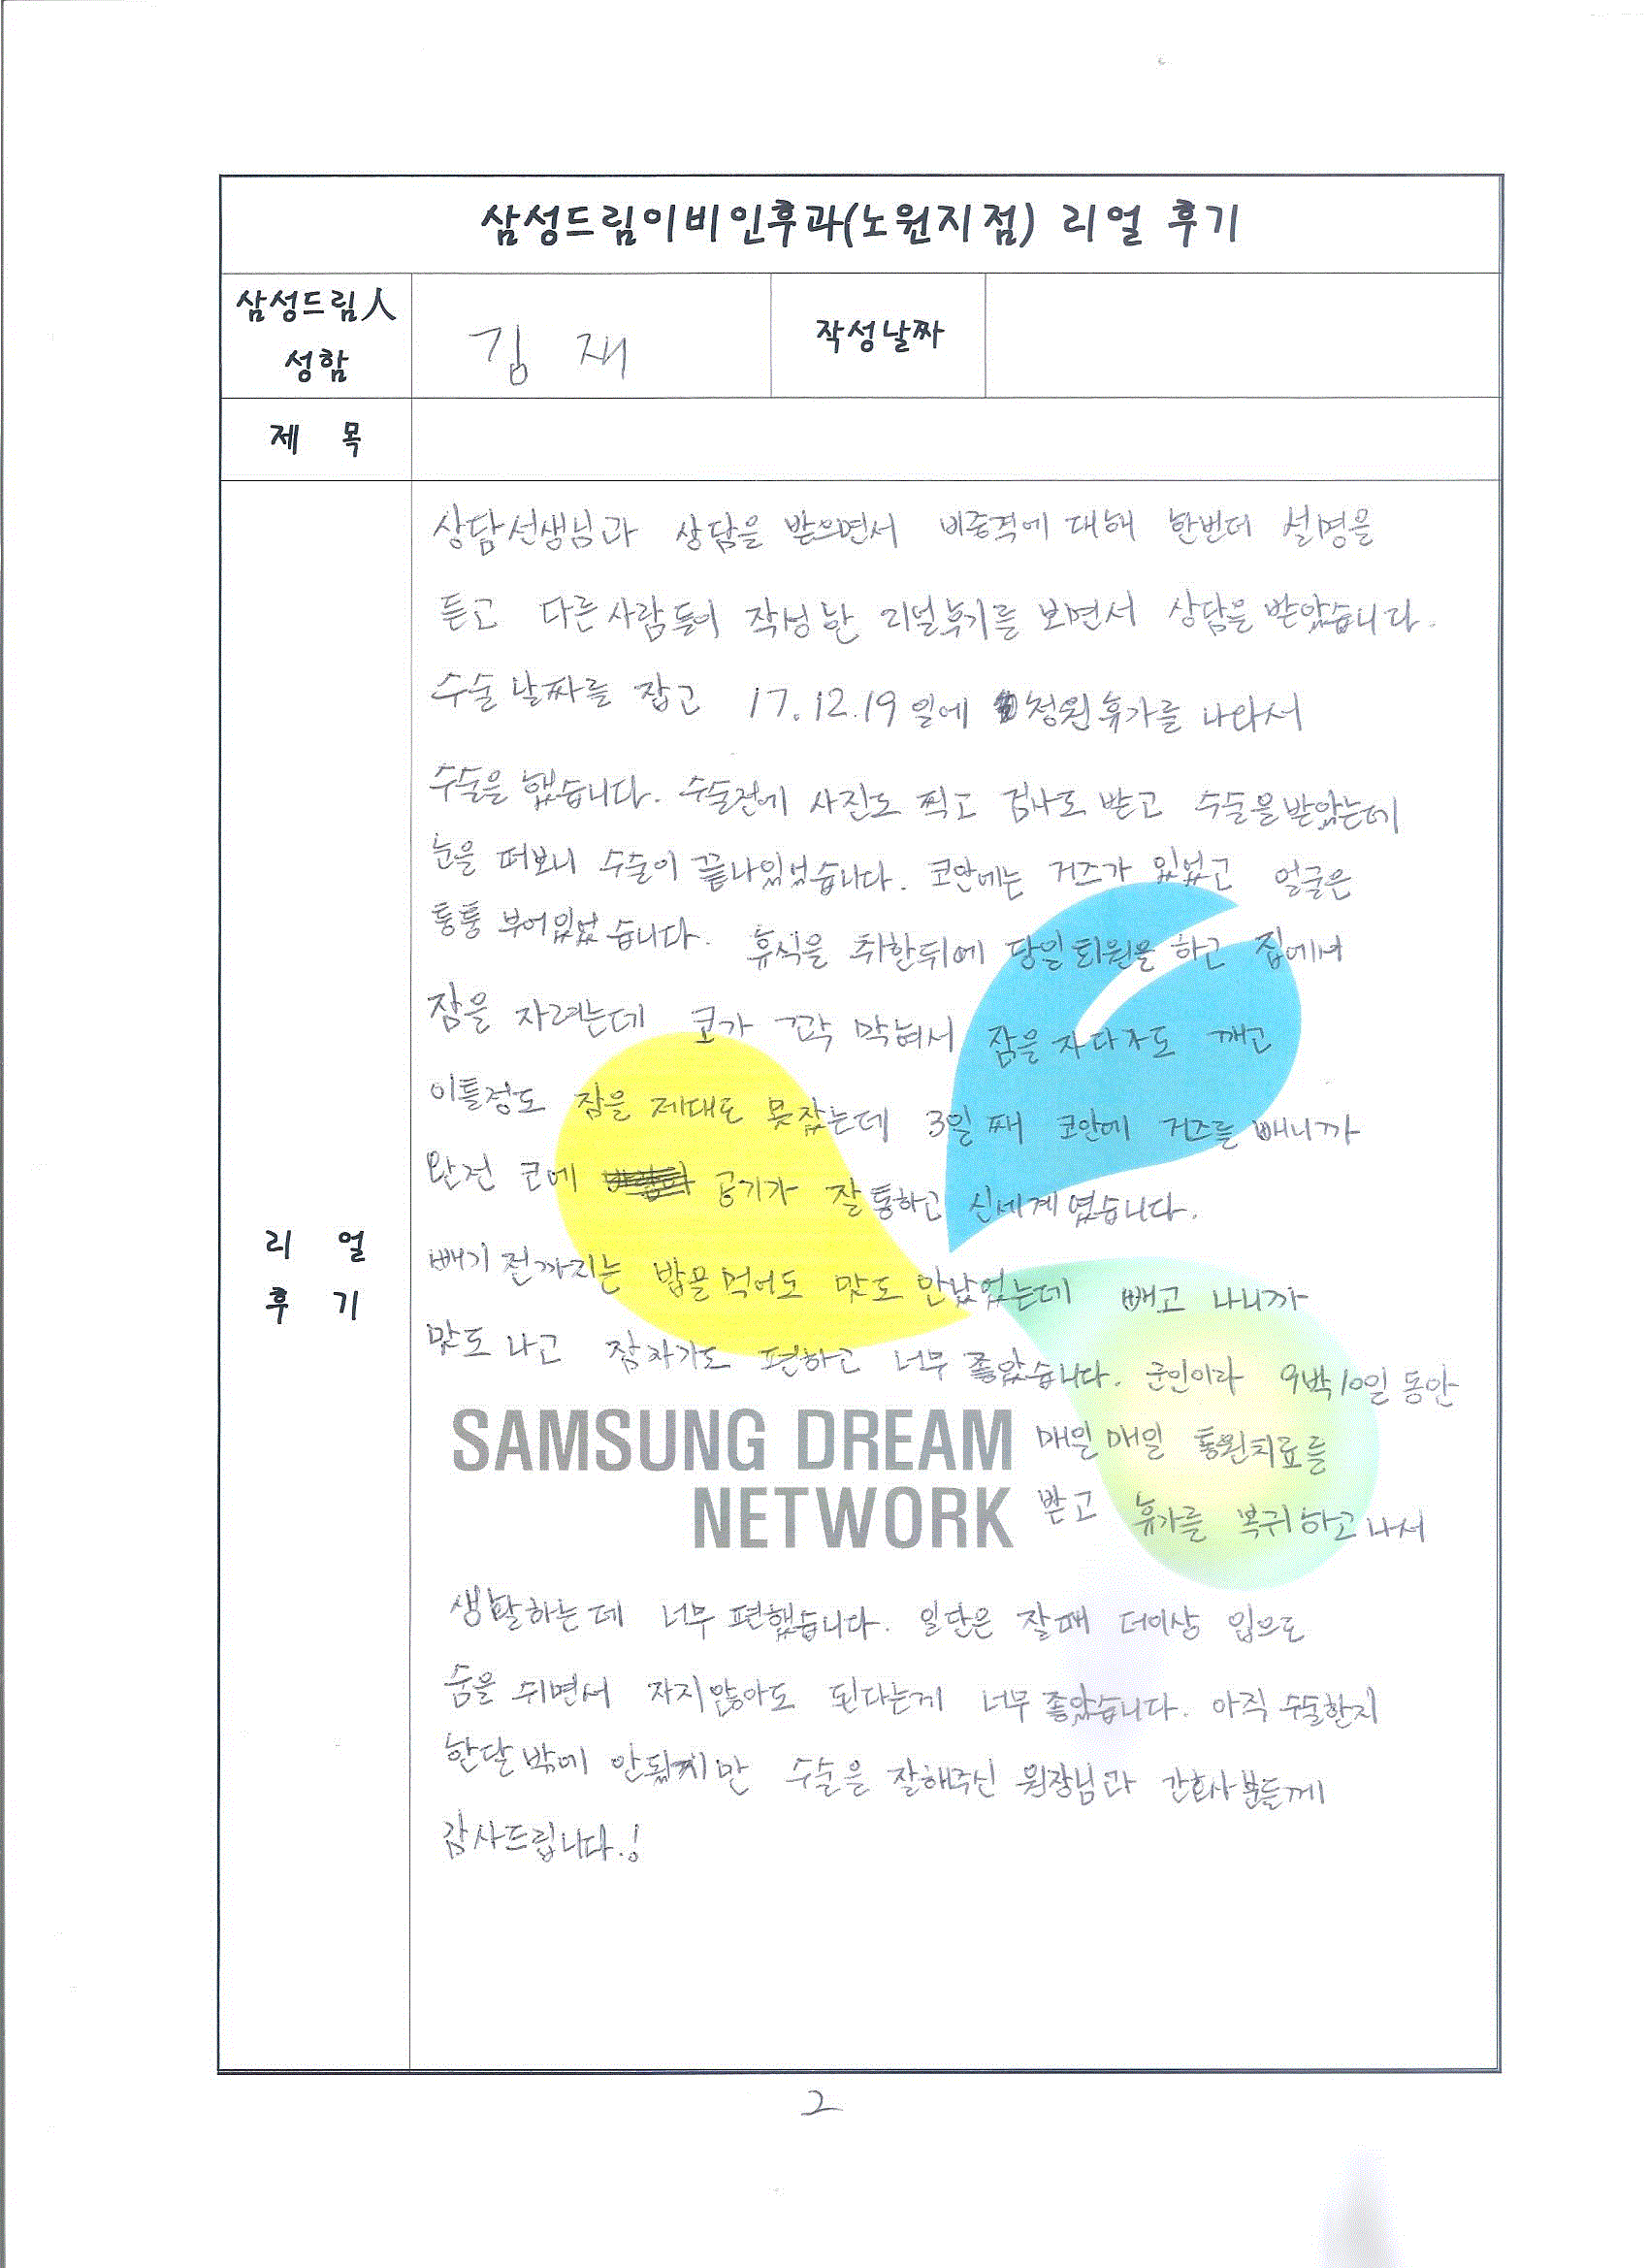 삼성드림이비인후과(노원지점) 리얼 후기
삼성드림人 성함
김 재
작성날짜
제 목
리 얼 후 기
상담선생님과 상담을 받으면서 비중격에 대해 한번더 설명을
듣고 다른사람들이 작성한 리얼후기를 보면서 상담을 받았습니다.
수술날짜를 잡고 17.12.19일에 청원휴가를 나와서
수술을 했습니다. 수술전에 사진도 찍고 검사도 받고 수술을받았는데
눈을 떠보니 수술이 끝나있었습니다. 코안에는 거즈가 있었고 얼굴은
퉁퉁 부어있었습니다. 휴식을 취한뒤에 당일퇴원을 하고 집에서
잠을 자려는데 코가 꽉 막혀서 잠을자다가도 깨고
이틀정도 잠을 제대로 못잤는데 3일째 코안에 거즈를 빼니까
완전 코에 공기가 잘통하고 신세계였습니다.
빼기 전까지는 밥을먹어도 맛도 안났었는데 빼고 나니까
맛도 나고 잠자기도 편하고 너무 좋았습니다. 군인이라 9박10일 동안
SAMSUNG DREAM 매일매일 통원치료를
NETWORK 받고 휴가를 복귀하고나서
생활하는데 너무 편했습니다. 일단은 잘때 더이상 입으로
숨을 쉬면서 자지않아도 된다는게 너무 좋았습니다. 아직 수술한지
한달밖에 안됐지만 수술을 잘해주신 원장님과 간호사분들께
감사드립니다.!
2